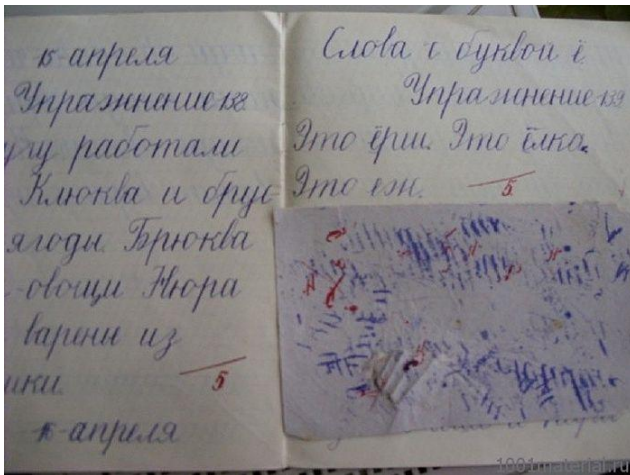 15 апреля
Упражнение 138.
лугу работали
Клюква и брус-
ягоды. Брюква
овощи Нюра
варенье из
ики.
5
15 апреля
Слова с буквой ё.
Упражнение 139
Это ёрш. Это ёлка.
Это еж.
5
1001material.ru